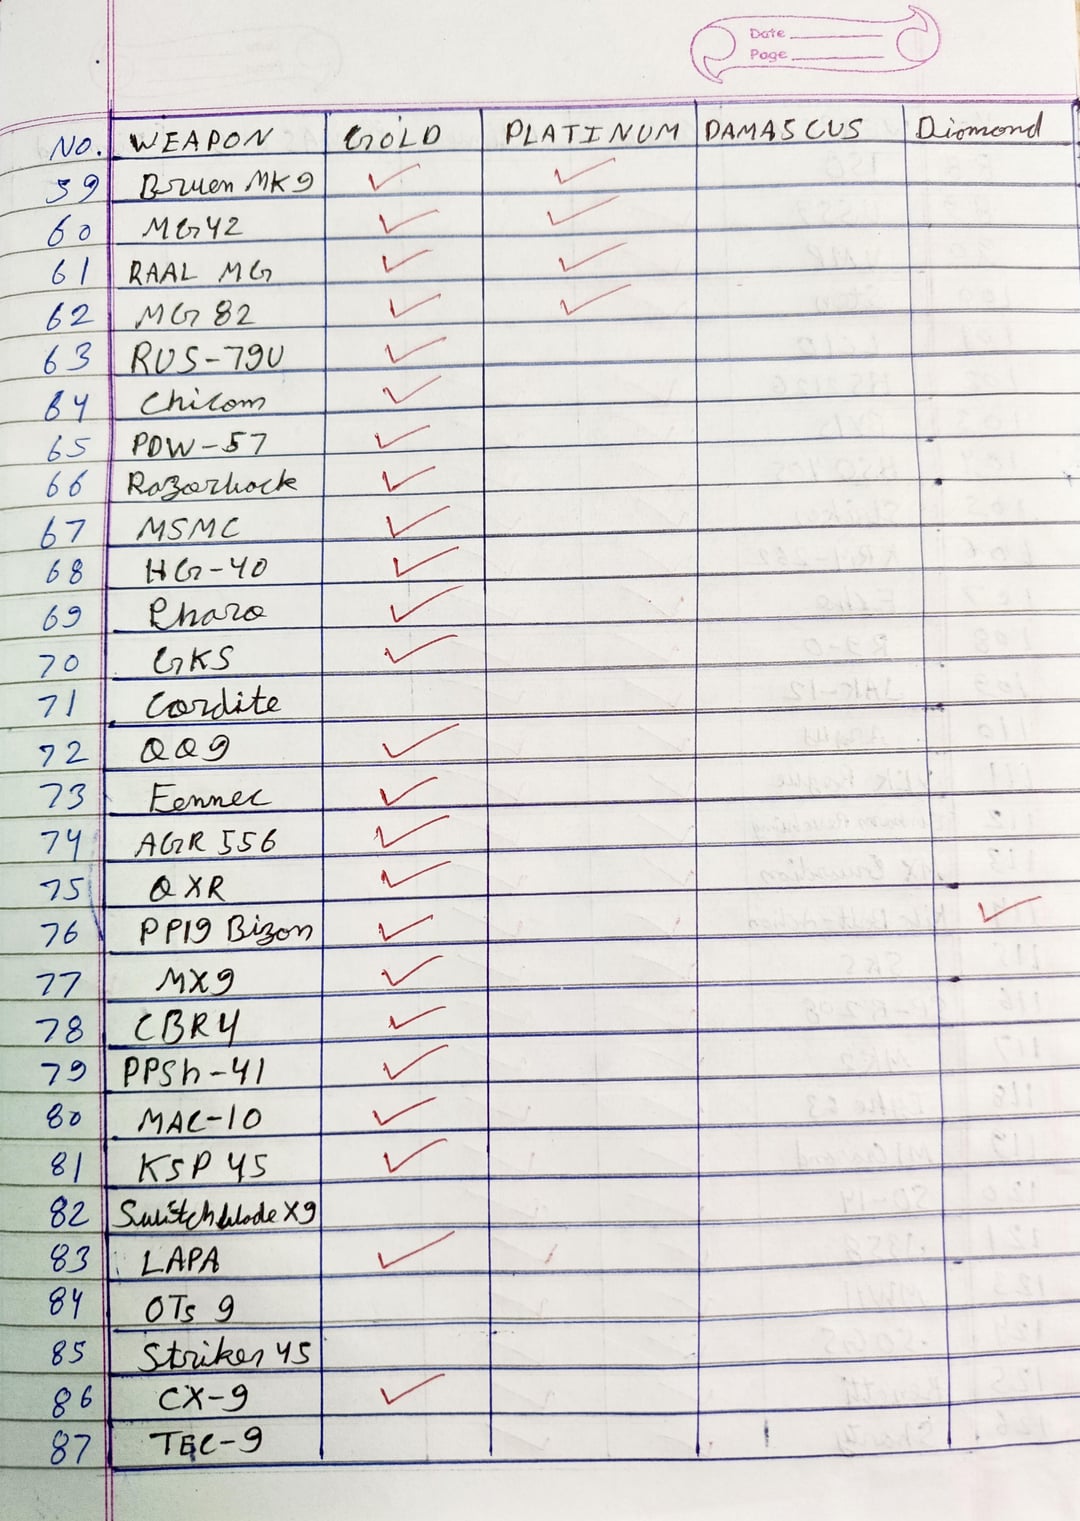 Date
Page
NO. WEAPON GOLD PLATINUM DAMASCUS Diomond
59 Bruen MK9 ✓ ✓
60 MG42 ✓ ✓
61 RAAL MG ✓ ✓
62 MG 82 ✓ ✓
63 RUS-79U ✓
64 Chicom ✓
65 PDW-57 ✓
66 Razorback ✓
67 MSMC ✓
68 HG-40 ✓
69 Pharo ✓
70 GKS ✓
71 Cordite
72 QQ9 ✓
73 Fennec ✓
74 AGR 556 ✓
75 QXR ✓
76 PP19 Bizon ✓ ✓
77 MX9 ✓
78 CBR4 ✓
79 PPSh-41 ✓
80 MAC-10 ✓
81 KSP 45 ✓
82 Switchblade X9
83 LAPA ✓
84 OTs 9
85 Striker 45
86 CX-9 ✓
87 TEC-9